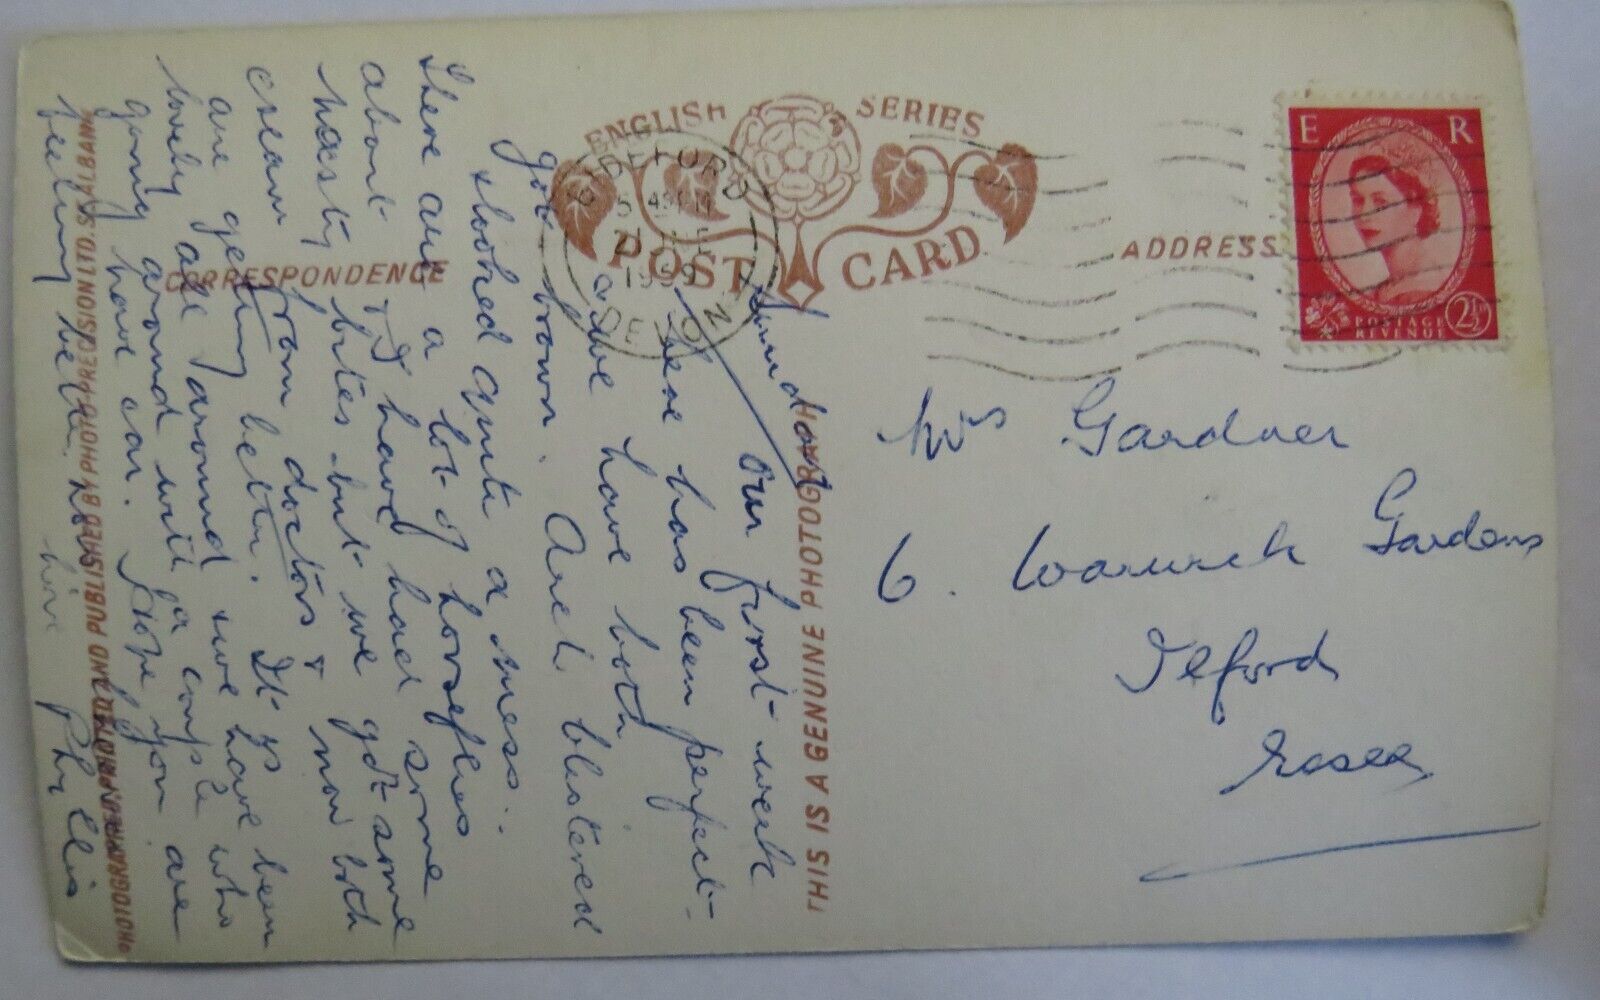 ENGLISH SERIES
POST CARD
CORRESPONDENCE
ADDRESS
E R
POSTAGE
REVENUE
2½D
BIDEFORD
1959
DEVON
THIS IS A GENUINE PHOTOGRAPH
PHOTOGRAPHED AND PUBLISHED BY PHOTO PRECISION LTD. ST. ALBANS
Mrs Gardner
6. Warwick Gardens
Ilford
Essex
Sunday
Our first week
here has been perfect-
& we have both
got brown. Avril blistered
& looked quite a mess.
There are a lot of horseflies
about & I have had some
nasty bites but we got some
cream from doctors & now both
are getting better. It is
lovely all around & we have been
going around with a couple who
have car. Hope you are
feeling better. Love
Phyllis